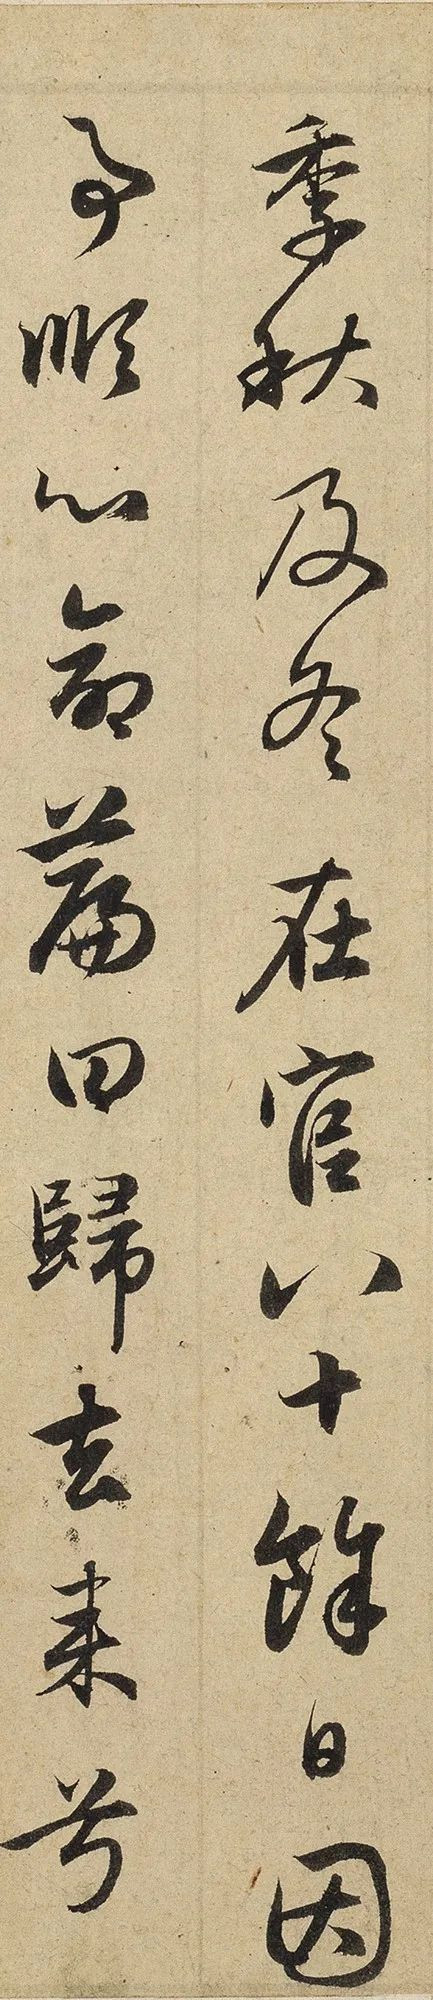 季秋及冬在官八十餘日因
事順心命篇曰歸去来兮